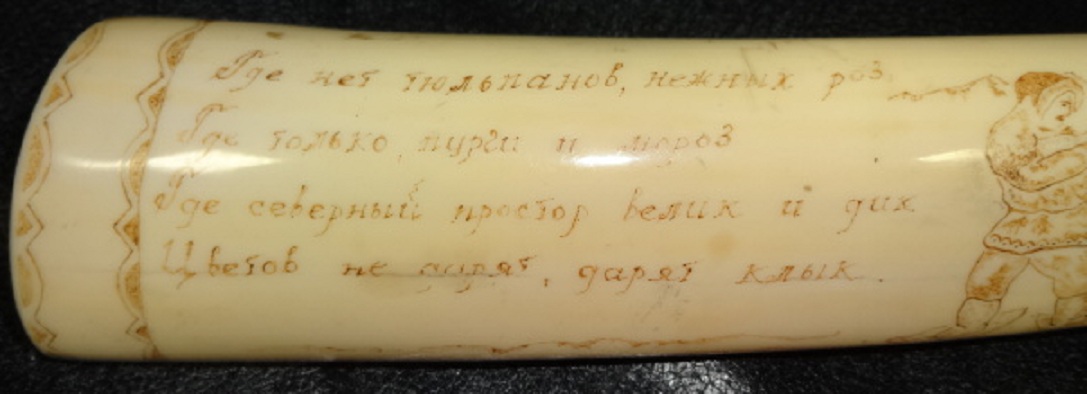 Где нет тюльпанов, нежных роз
Где только пурги и мороз
Где северный простор велик и дик
Цветов не дарят, дарят клык.